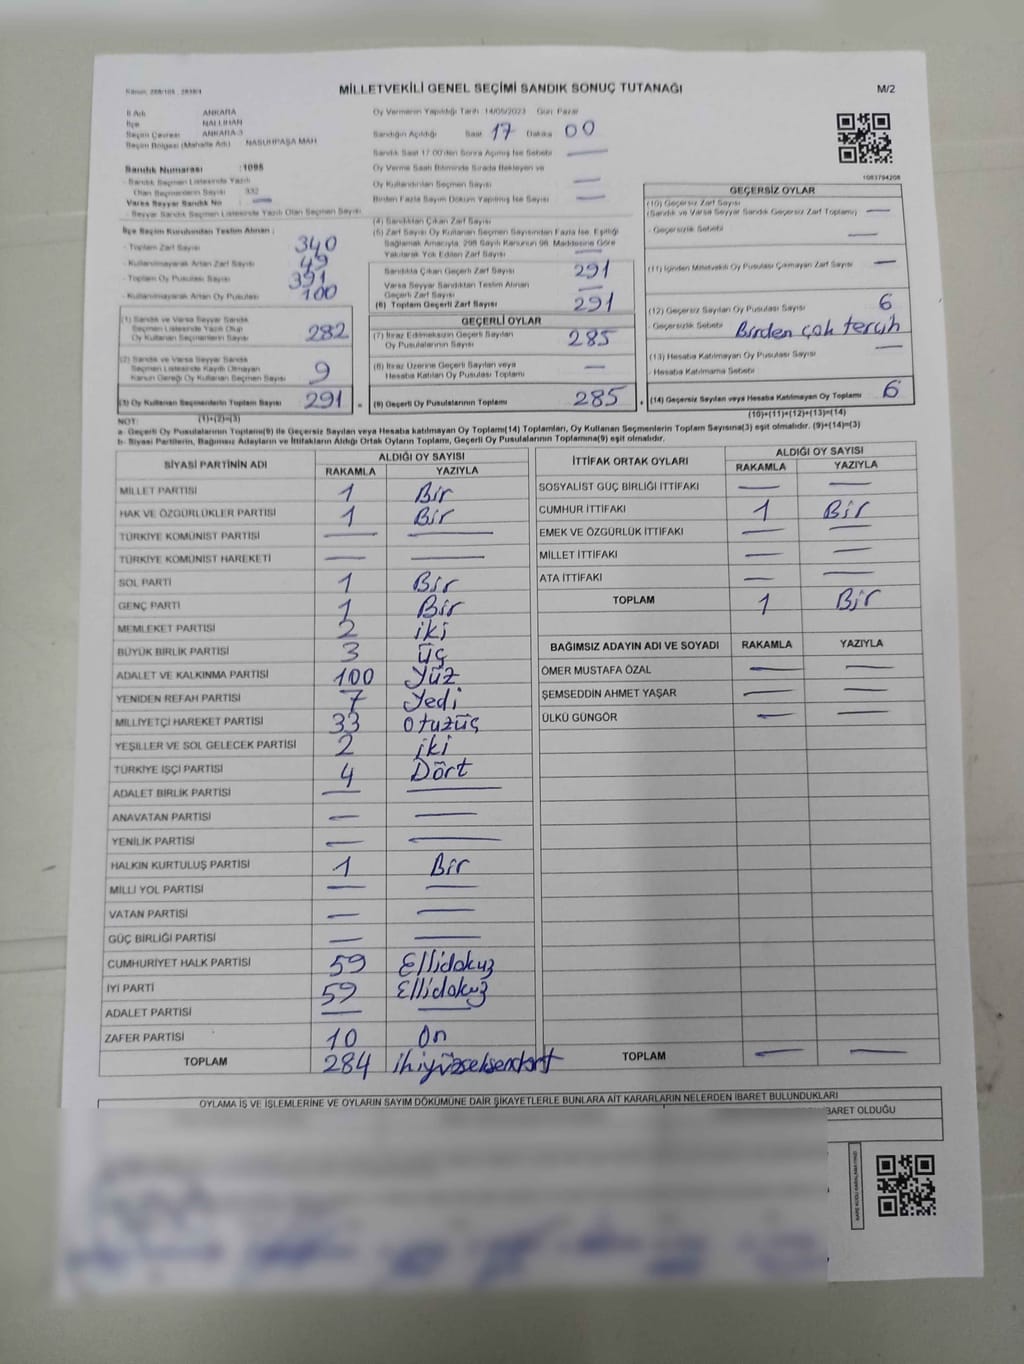 Kanun: 298/105 , 2839/4
MİLLETVEKİLİ GENEL SEÇİMİ SANDIK SONUÇ TUTANAĞI
M/2
İl Adı ANKARA
İlçe NALLIHAN
Seçim Çevresi ANKARA-3
Seçim Bölgesi (Mahalle Adı) NASUHPAŞA MAH.
Oy Vermenin Yapıldığı Tarih 14/05/2023 Gün Pazar
Sandığın Açıldığı Saat 17 Dakika 00
Sandık Saat 17:00'den Sonra Açılmış İse Sebebi —
Oy Verme Saati Bitiminde Sırada Bekleyen ve
Oy Kullandırılan Seçmen Sayısı —
Birden Fazla Sayım Döküm Yapılmış İse Sayısı —
1083794208
Sandık Numarası :1095
- Sandık Seçmen Listesinde Yazılı
Olan Seçmenlerin Sayısı 332
Varsa Seyyar Sandık No —
- Seyyar Sandık Seçmen Listesinde Yazılı Olan Seçmen Sayısı
İlçe Seçim Kurulundan Teslim Alınan ;
- Toplam Zarf Sayısı 340
- Kullanılmayarak Artan Zarf Sayısı 49
- Toplam Oy Pusulası Sayısı 391
- Kullanılmayarak Artan Oy Pusulası 100
(1) Sandık ve Varsa Seyyar Sandık
Seçmen Listesinde Yazılı Olup
Oy Kullanan Seçmenlerin Sayısı 282
(2) Sandık ve Varsa Seyyar Sandık
Seçmen Listesinde Kayıtlı Olmayan
Kanun Gereği Oy Kullanan Seçmen Sayısı 9
(3) Oy Kullanan Seçmenlerin Toplam Sayısı 291 =
(1)+(2)=(3)
(4) Sandıktan Çıkan Zarf Sayısı
(5) Zarf Sayısı Oy Kullanan Seçmen Sayısından Fazla İse, Eşitliği
Sağlamak Amacıyla, 298 Sayılı Kanunun 98. Maddesine Göre
Yakılarak Yok Edilen Zarf Sayısı —
Sandıkta Çıkan Geçerli Zarf Sayısı 291
Varsa Seyyar Sandıktan Teslim Alınan
Geçerli Zarf Sayısı —
(6) Toplam Geçerli Zarf Sayısı 291
GEÇERLİ OYLAR
(7) İtiraz Edilmeksizin Geçerli Sayılan
Oy Pusulalarının Sayısı 285
(8) İtiraz Üzerine Geçerli Sayılan veya
Hesaba Katılan Oy Pusulası Toplamı —
(9) Geçerli Oy Pusulalarının Toplamı 285 +
GEÇERSİZ OYLAR
(10) Geçersiz Zarf Sayısı
(Sandık ve Varsa Seyyar Sandık Geçersiz Zarf Toplamı) —
- Geçersizlik Sebebi —
(11) İçinden Milletvekili Oy Pusulası Çıkmayan Zarf Sayısı —
(12) Geçersiz Sayılan Oy Pusulası Sayısı 6
- Geçersizlik Sebebi Birden çok tercih
(13) Hesaba Katılmayan Oy Pusulası Sayısı —
- Hesaba Katılmama Sebebi
(14) Geçersiz Sayılan veya Hesaba Katılmayan Oy Toplamı 6
(10)+(11)+(12)+(13)=(14)
NOT:
a- Geçerli Oy Pusulalarının Toplamı(9) ile Geçersiz Sayılan veya Hesaba Katılmayan Oy Toplamı(14) Toplamları, Oy Kullanan Seçmenlerin Toplam Sayısına(3) eşit olmalıdır. (9)+(14)=(3)
b- Siyasi Partilerin, Bağımsız Adayların ve İttifakların Aldığı Ortak Oyların Toplamı, Geçerli Oy Pusulalarının Toplamına(9) eşit olmalıdır.
SİYASİ PARTİNİN ADI ALDIĞI OY SAYISI
RAKAMLA YAZIYLA
MİLLET PARTİSİ 1 Bir
HAK VE ÖZGÜRLÜKLER PARTİSİ 1 Bir
TÜRKİYE KOMÜNİST PARTİSİ — —
TÜRKİYE KOMÜNİST HAREKETİ — —
SOL PARTİ 1 Bir
GENÇ PARTİ 1 Bir
MEMLEKET PARTİSİ 2 iki
BÜYÜK BİRLİK PARTİSİ 3 üç
ADALET VE KALKINMA PARTİSİ 100 Yüz
YENİDEN REFAH PARTİSİ 7 Yedi
MİLLİYETÇİ HAREKET PARTİSİ 33 otuzüç
YEŞİLLER VE SOL GELECEK PARTİSİ 2 iki
TÜRKİYE İŞÇİ PARTİSİ 4 Dört
ADALET BİRLİK PARTİSİ — —
ANAVATAN PARTİSİ — —
YENİLİK PARTİSİ — —
HALKIN KURTULUŞ PARTİSİ 1 Bir
MİLLİ YOL PARTİSİ — —
VATAN PARTİSİ — —
GÜÇ BİRLİĞİ PARTİSİ — —
CUMHURİYET HALK PARTİSİ 59 Ellidokuz
İYİ PARTİ 59 Ellidokuz
ADALET PARTİSİ — —
ZAFER PARTİSİ 10 On
TOPLAM 284 ikiyüzseksendört
İTTİFAK ORTAK OYLARI ALDIĞI OY SAYISI
RAKAMLA YAZIYLA
SOSYALİST GÜÇ BİRLİĞİ İTTİFAKI — —
CUMHUR İTTİFAKI 1 Bir
EMEK VE ÖZGÜRLÜK İTTİFAKI — —
MİLLET İTTİFAKI — —
ATA İTTİFAKI — —
TOPLAM 1 Bir
BAĞIMSIZ ADAYIN ADI VE SOYADI RAKAMLA YAZIYLA
ÖMER MUSTAFA ÖZAL — —
ŞEMSEDDİN AHMET YAŞAR — —
ÜLKÜ GÜNGÖR — —
TOPLAM — —
OYLAMA İŞ VE İŞLEMLERİNE VE OYLARIN SAYIM DÖKÜMÜNE DAİR ŞİKAYETLERLE BUNLARA AİT KARARLARIN NELERDEN İBARET BULUNDUKLARI
İBARET OLDUĞU